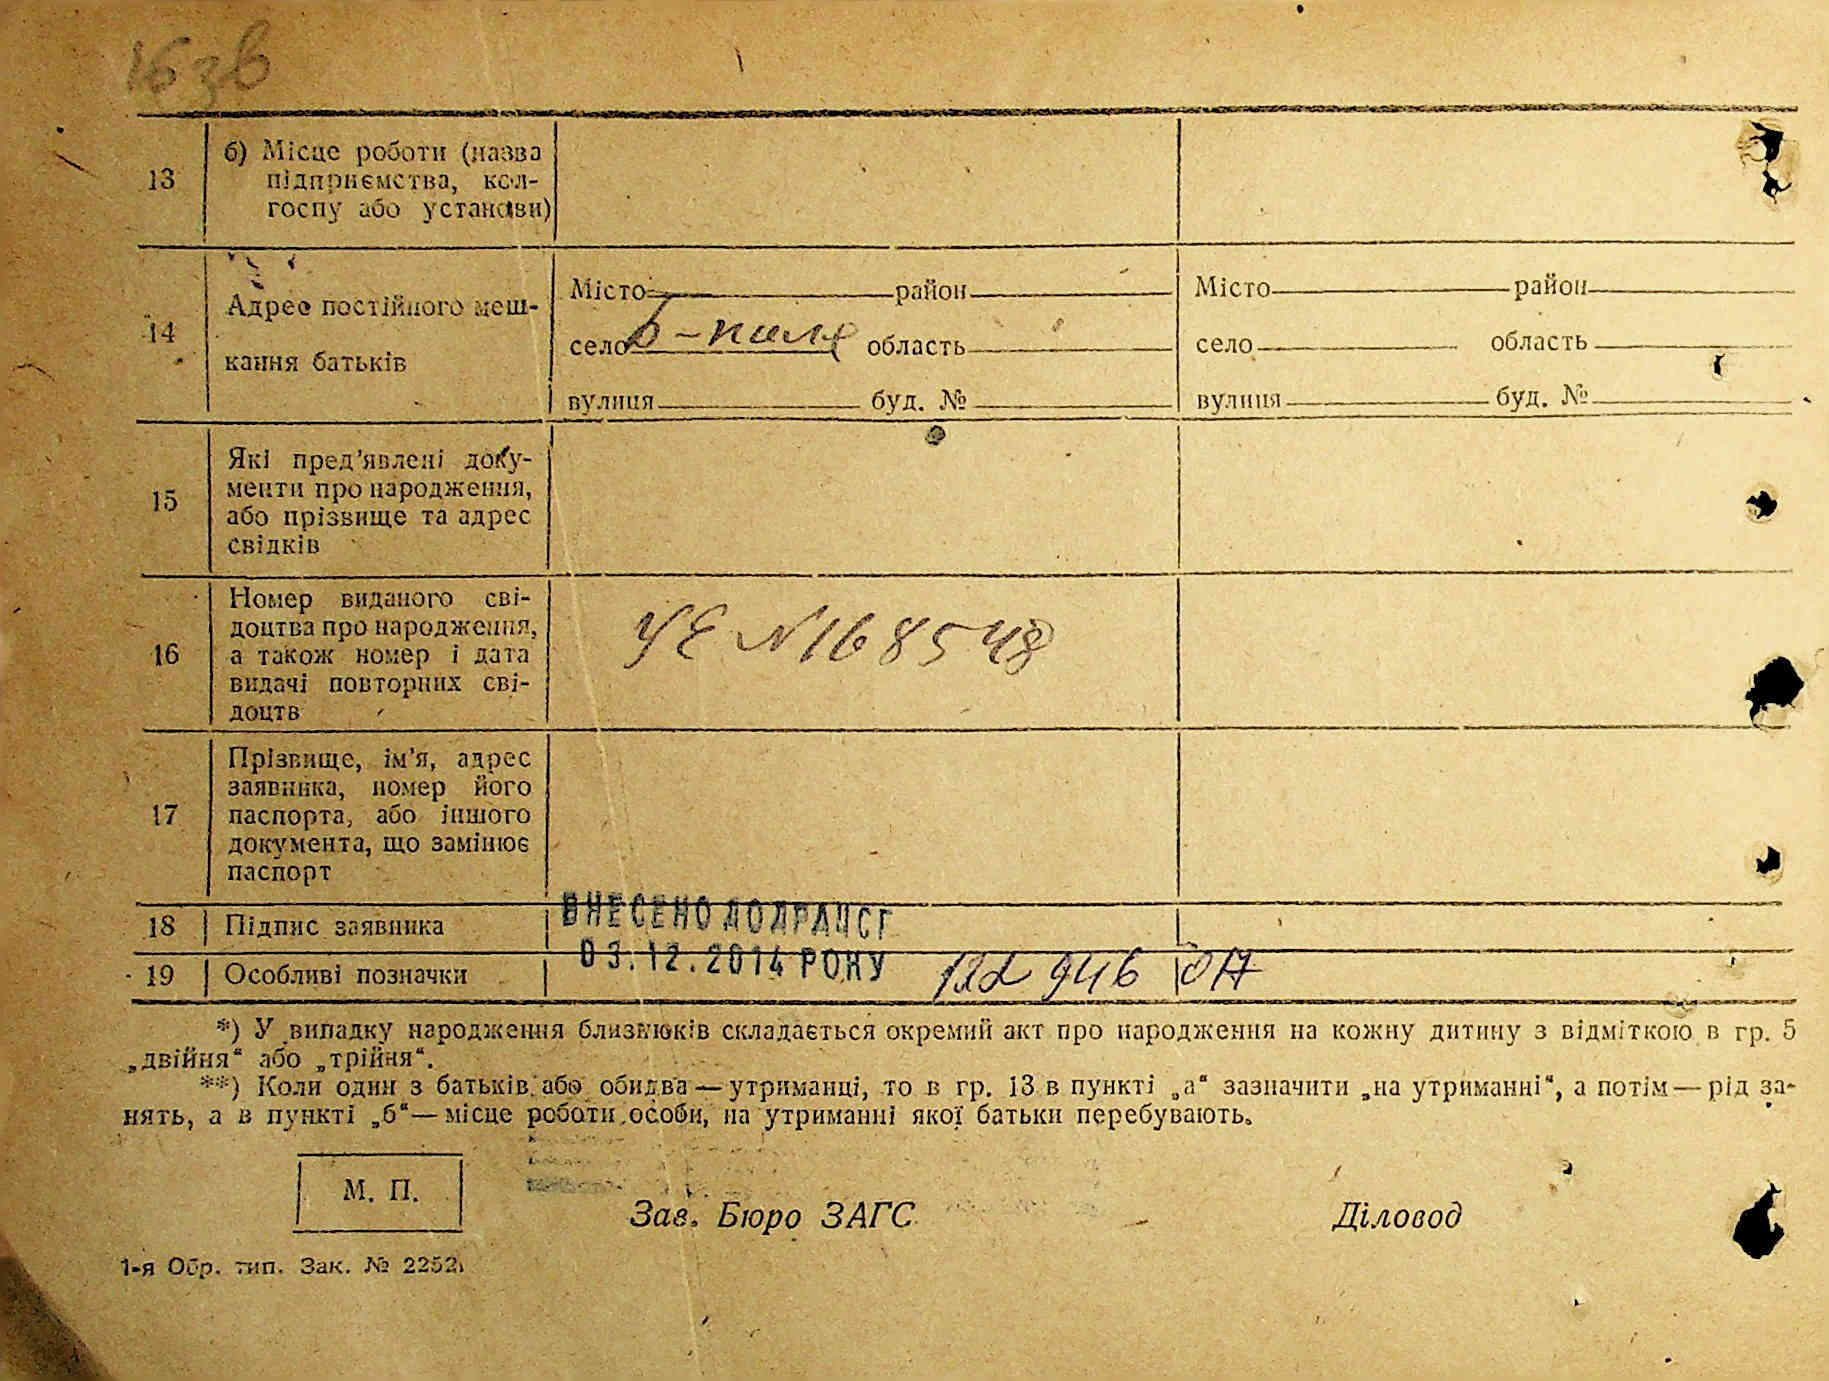 163в
13
б) Місце роботи (назва
підприємства, кол-
госпу або установи)
14
Адрес постійного меш-
кання батьків
Місто район
село Б-поле область
вулиця буд. №
Місто район
село область
вулиця буд. №
15
Які пред’явлені доку-
менти про народження,
або прізвище та адрес
свідків
16
Номер виданого сві-
доцтва про народження,
а також номер і дата
видачі повторних сві-
доцтв
УЕ №168548
17
Прізвище, ім’я, адрес
заявника, номер його
паспорта, або іншого
документа, що замінює
паспорт
18
Підпис заявника
ВНЕСЕНО ДО ДРАЦСГ
19
Особливі позначки
03.12.2014 РОКУ
946
*) У випадку народження близнюків складається окремий акт про народження на кожну дитину з відміткою в гр. 5
„двійня“ або „трійня“.
**) Коли один з батьків або обидва — утриманці, то в гр. 13 в пункті „а“ зазначити „на утриманні“, а потім — рід за-
нять, а в пункті „б“ — місце роботи особи, на утриманні якої батьки перебувають.
М. П.
Зав. Бюро ЗАГС
Діловод
1-я Обр. тип. Зак. № 2252